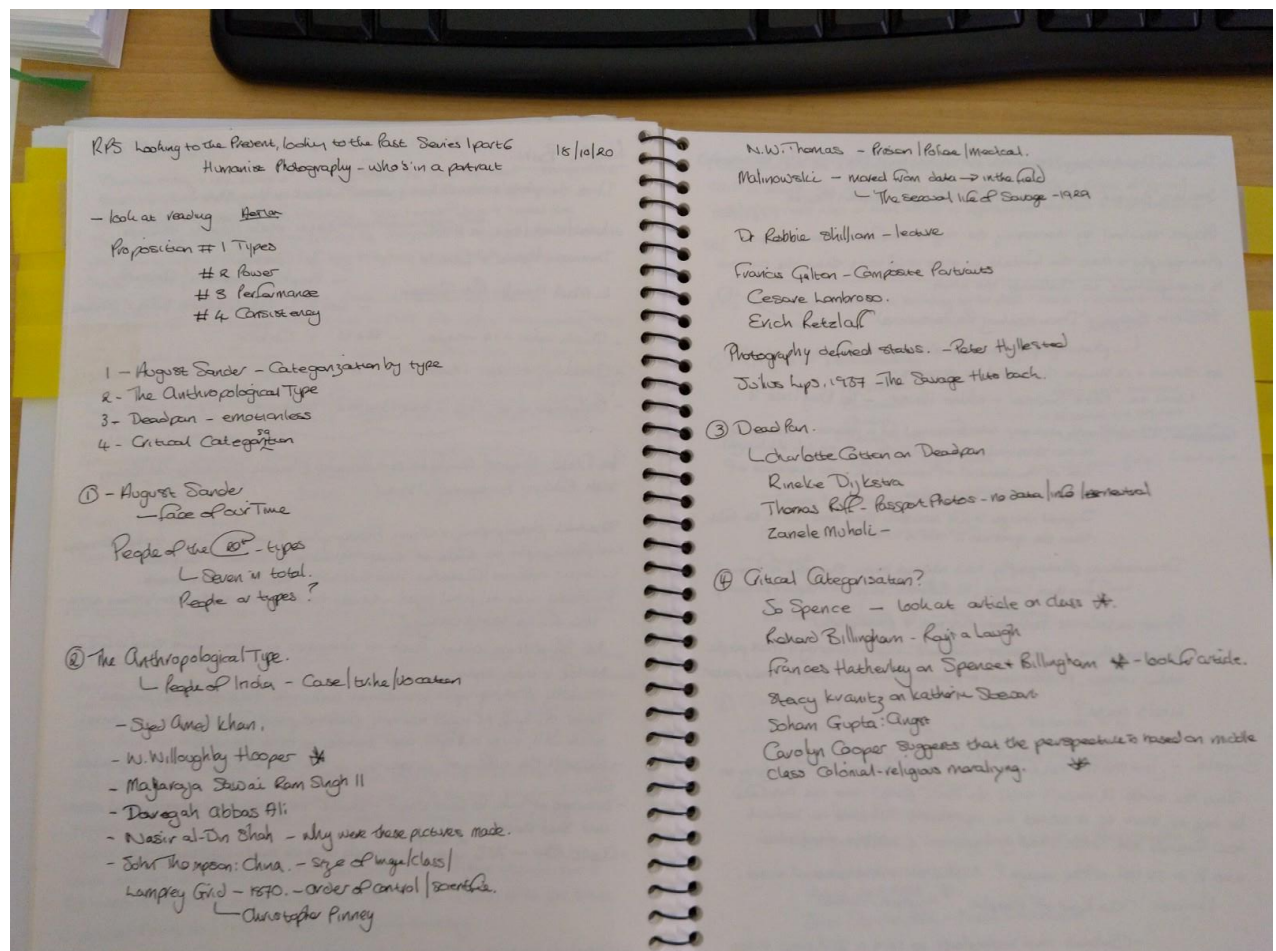 RPS Looking to the Present, looking to the Past Series 1 part 6
18/10/20
Humanise Photography - who's in a portrait
- look at reading
Proposition # 1 Types
# 2 Power
# 3 Performance
# 4 Consistency
1 - August Sander - Categorization by type
2 - The Anthropological Type
3 - Deadpan - emotionless
4 - Critical Categorisation
① - August Sander
- Face of our Time
People of the 20th - types
Seven in total.
People or types?
② The Anthropological Type.
People of India - Case/tribe/vocation
- Syed Amed Khan.
- W. Willoughby Hooper *
- Maharaja Sawai Ram Singh II
- Darogah Abbas Ali
- Nasir al-Din Shah - why were these pictures made.
- John Thompson: China. - size of image/class/
Lamprey Grid - 1870. - order of control/scientific.
Christopher Pinney
N.W. Thomas - Prison/Police/medical.
Malinowski - moved from data → in the field
The sexual life of Savage - 1929
Dr Robbie Shilliam - lecture
Francis Galton - Composite Portraits
Cesare Lombroso.
Erich Retzlaff
Photography defined status. - Peter Hyllested
Julius Lips, 1937 - The Savage Hits back.
③ Dead Pan.
Charlotte Cotton on Deadpan
Rineke Dijkstra
Thomas Ruff - Passport Photos - no data/info/neutral
Zanele Muholi -
④ Critical Categorisation?
Jo Spence - look at article on class *.
Richard Billingham - Ray's a Laugh
Frances Hatherley on Spence + Billingham * - look for article.
Stacy Kranitz on Katherine Stewart
Soham Gupta: Angst
Carolyn Cooper suggests that the perspective is based on middle
class Colonial-religious moralizing. *